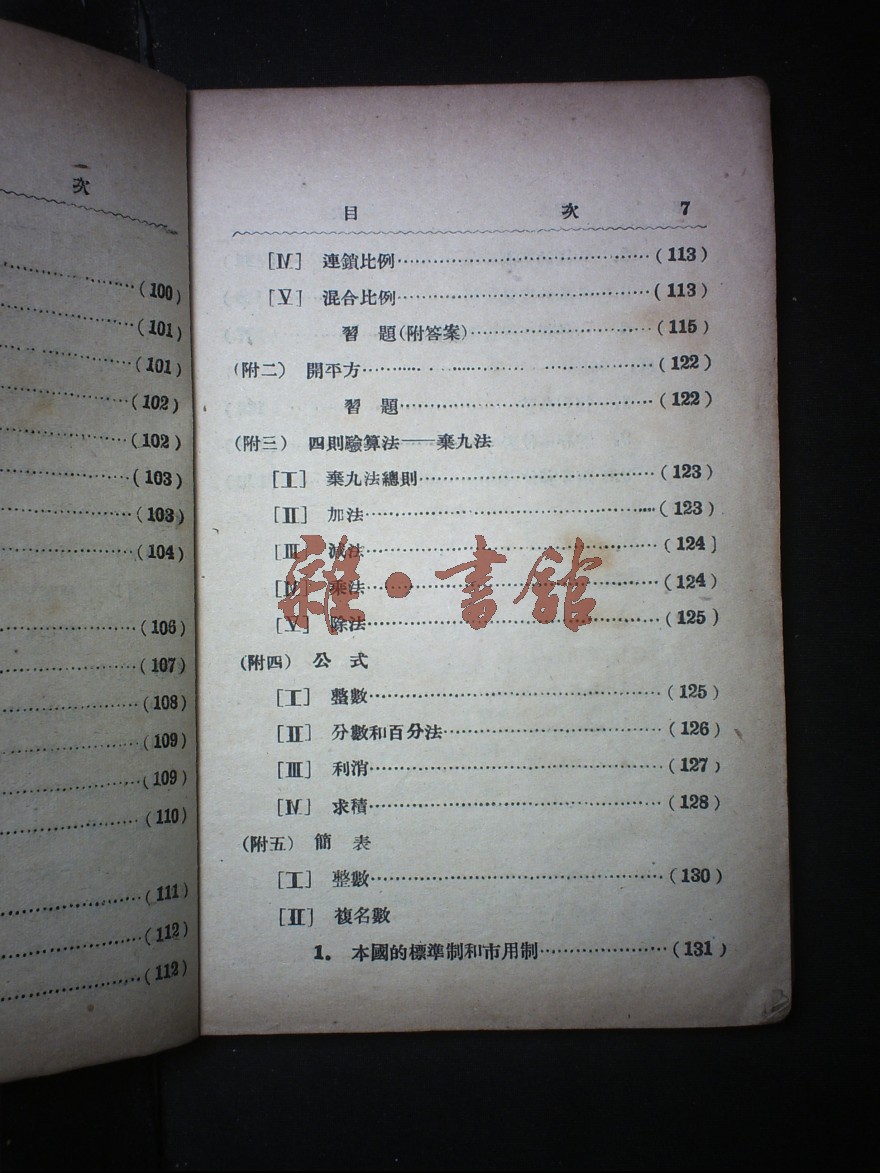 次
(100)
(101)
(101)
(102)
(102)
(103)
(103)
(104)
(106)
(107)
(108)
(109)
(109)
(110)
(111)
(112)
(112)
目 次 7
[Ⅳ] 連鎖比例……(113)
[Ⅴ] 混合比例……(113)
習 題(附答案)……(115)
(附二) 開平方……(122)
習 題……(122)
(附三) 四則驗算法——棄九法
[Ⅰ] 棄九法總則……(123)
[Ⅱ] 加法……(123)
[Ⅲ] 減法……(124]
[Ⅳ] 乘法……(124)
[Ⅴ] 除法……(125)
(附四) 公 式
[Ⅰ] 整數……(125)
[Ⅱ] 分數和百分法……(126)
[Ⅲ] 利消……(127)
[Ⅳ] 求積……(128)
(附五) 簡 表
[Ⅰ] 整數……(130)
[Ⅱ] 複名數
1. 本國的標準制和市用制……(131)
雜·書館